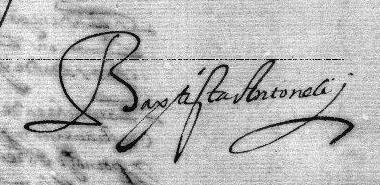 Baptista Antoneli